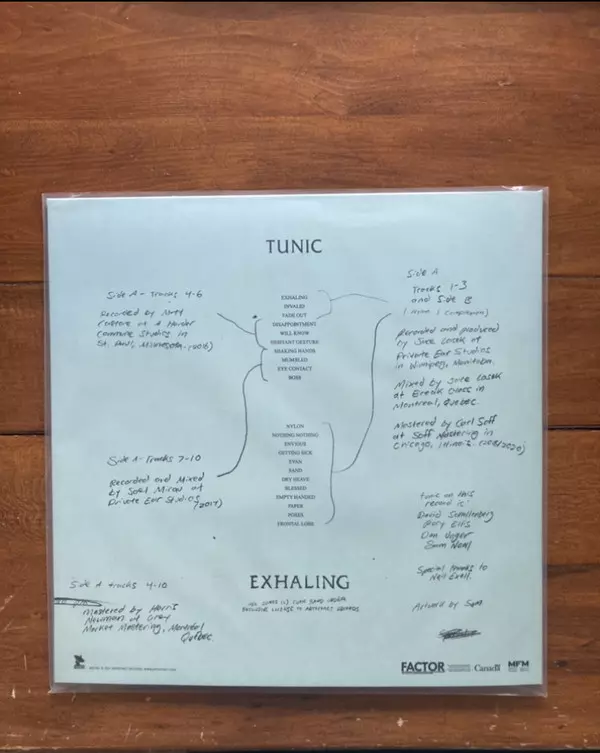 TUNIC
Side A - Tracks 4-6
Recorded by Matt
Castore at A Harder
Commune Studios in
St. Paul, Minnesota. (2016)
Side A - Tracks 7-10
Recorded and Mixed
by Sohl Mirau at
Private Ear Studios
(2017)
Side A tracks 4-10
Mastered by Harris
Newman at Grey
Market Mastering, Montréal
Québec
EXHALING
INVALID
FADE OUT
DISAPPOINTMENT
WILL KNOW
DEVIANT GESTURE
SHAKING HANDS
MUMBLED
EYE CONTACT
BOSS
NYLON
NOTHING NOTHING
ENVIOUS
GETTING SICK
EVAN
SAND
DRY HEAVE
BLESSED
EMPTY HANDED
PAPER
POSER
FRONTAL LOBE
EXHALING
Tunic 2021 under
exclusive license to Artoffact Records
Side A
Tracks 1-3
and Side B
Recorded and produced
by Jace Lasek at
Private Ear Studios
in Winnipeg, Manitoba.
Mixed by Jace Lasek
at Breakglass in
Montreal, Quebec
Mastered by Carl Saff
at Saff Mastering in
Chicago, Illinois. (2018/2020)
Tunic on this
record is:
David Schellenberg
Rory Ellis
Dan Unger
Sam Neal
Special thanks to
Artwork by Sam
FACTOR
Canada
MFM